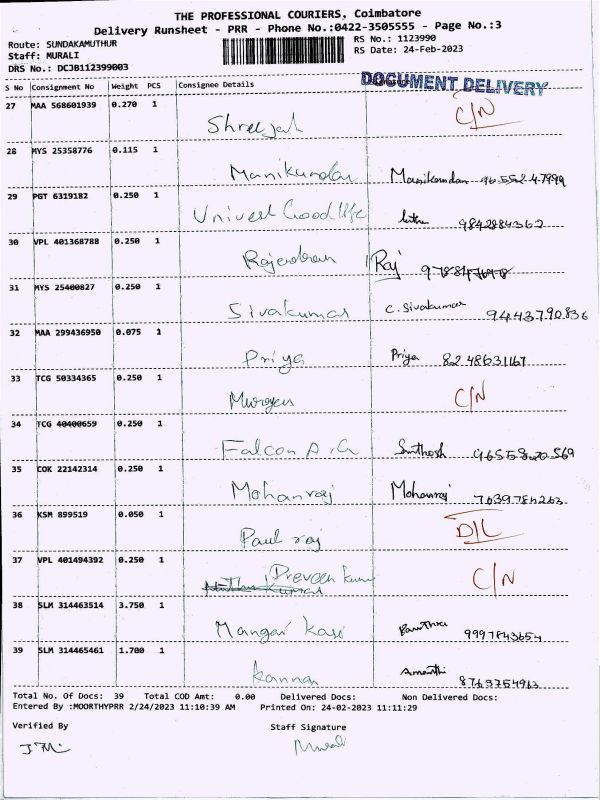 THE PROFESSIONAL COURIERS, Coimbatore
Delivery Runsheet - PRR - Phone No.:0422-3505555 - Page No.:3
Route: SUNDAKAMUTHUR
RS No.: 1123990
Staff: MURALI
RS Date: 24-Feb-2023
DRS No.: DCJB112399003
S No Consignment No Weight PCS Consignee Details
DOCUMENT DELIVERY
27 MAA 568601939 0.270 1 C/N
28 MYS 25358776 0.115 1 Manikundan Manikandan
29 PGT 6319182 0.250 1 Univest Good life 9842884362
30 VPL 401368788 0.250 1 Rajendran Raj
31 MYS 25400827 0.250 1 Sivakumar C. Sivakumar 9443790836
32 MAA 299436950 0.075 1 Priya Priya
33 TCG 50334365 0.250 1 Murugan C/N
34 TCG 40400659 0.250 1 Falcon Santhosh
35 COK 22142314 0.250 1 Mohanraj Mohanraj
36 KSM 899519 0.050 1 Paul raj D/L
37 VPL 401494392 0.250 1 Praveen Kumar C/N
38 SLM 314463514 3.750 1 Mangai Kasi 9997843654
39 SLM 314465461 1.700 1 Kannan 8763754963
Total No. Of Docs: 39 Total COD Amt: 0.00 Delivered Docs: Non Delivered Docs:
Entered By :MOORTHYPRR 2/24/2023 11:10:39 AM Printed On: 24-02-2023 11:11:29
Verified By Staff Signature
Murali